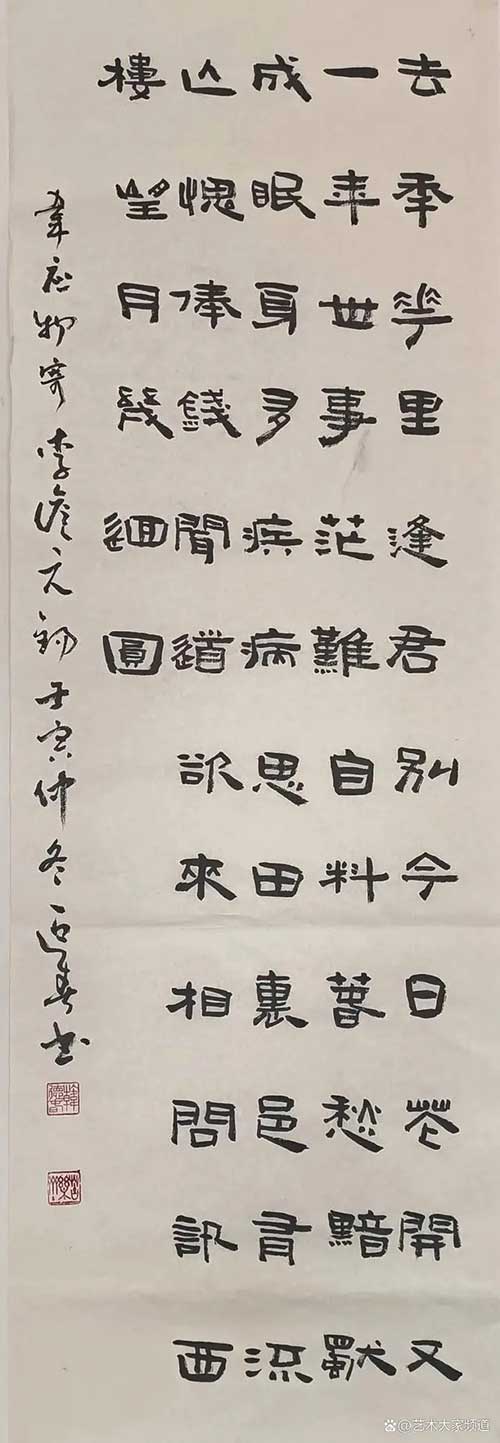 去年花里逢君别今日花開又
一年世事茫難自料萅愁黯獨
成眠身多疾病思田裏邑有流
亾愧俸錢聞道欲來相問訊西
樓望月幾迴圓
韋应物寄李儋元錫壬寅仲冬迎春书
艺术大家频道